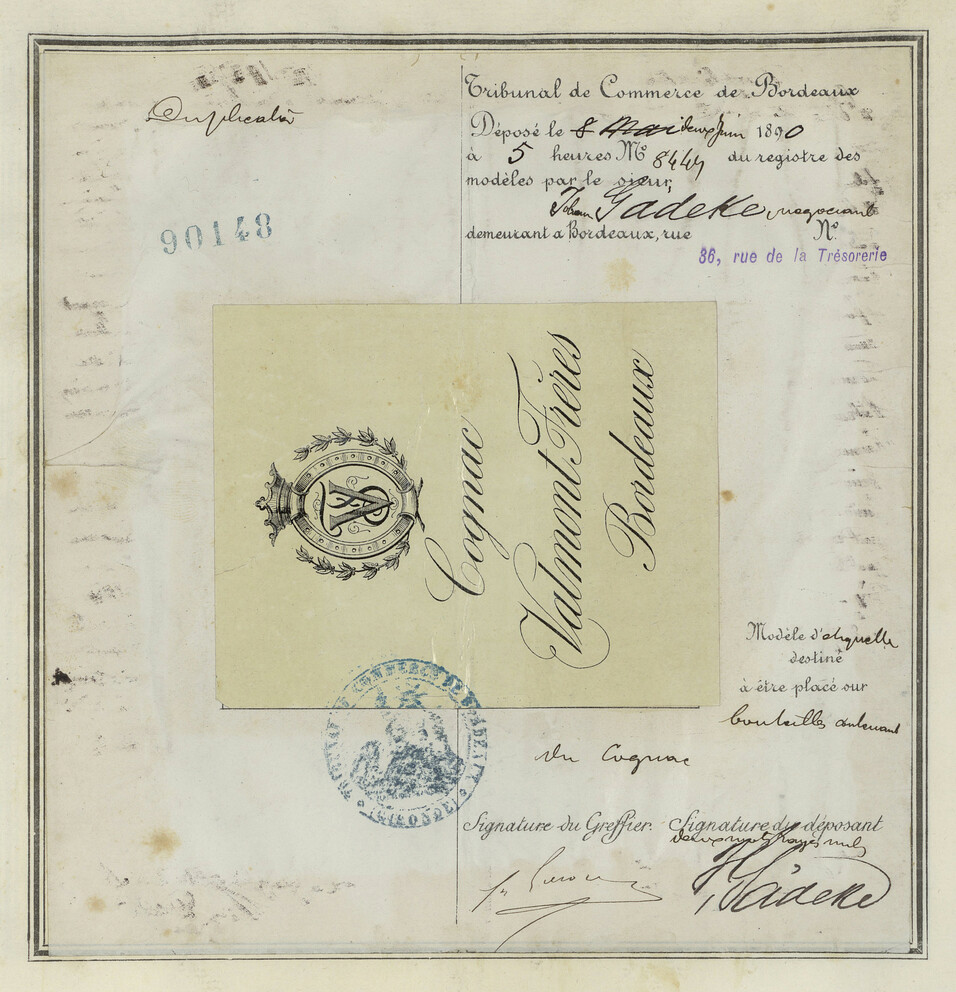 Duplicata
90148
Tribunal de Commerce de Bordeaux
Déposé le 8 mai deux Juin 1890
à 5 heures Mº 8449 du registre des
modèles par le sieur,
Gädeke négociant
demeurant à Bordeaux, rue Nº
36, rue de la Trésorerie
VF
Cognac
Valmont Frères
Bordeaux
Modèle d'étiquette
destiné
à être placé sur
bouteilles contenant
du Cognac
TRIBUNAL DE COMMERCE DE BORDEAUX
(GIRONDE)
Signature du Greffier. Signature du déposant
deux mots rayés nuls
Gädeke